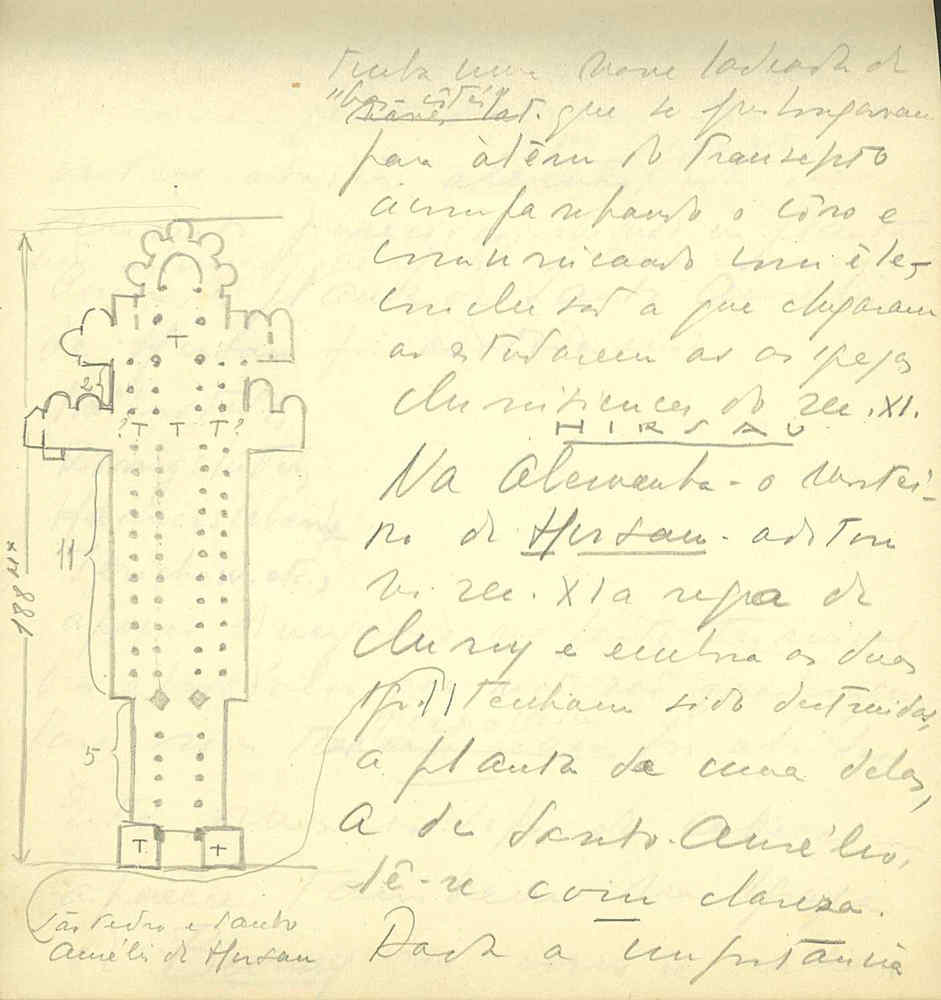 tinha uma nave ladeada de
"bas côtés"
naves lat. que se prolongavam
para àlém do transepto
acompanhando o côro e
comunicando com êle,
conclusão a que chegaram
ao estudarem as as igrejas
clunisienses do sec. XI.
HIRSAU
Na Alemanha - o mostei-
ro de Hirsau - adotou
no sec. XI a regra de
Cluny e embora as duas
tenham sido destruidas,
a planta de uma delas,
a de Santo Aurélio,
lê-se com clareza.
Dada a importancia
T
2
?T T T?
11
188 M
5
T +
São Pedro e Santo
Aurélio de Hirsau